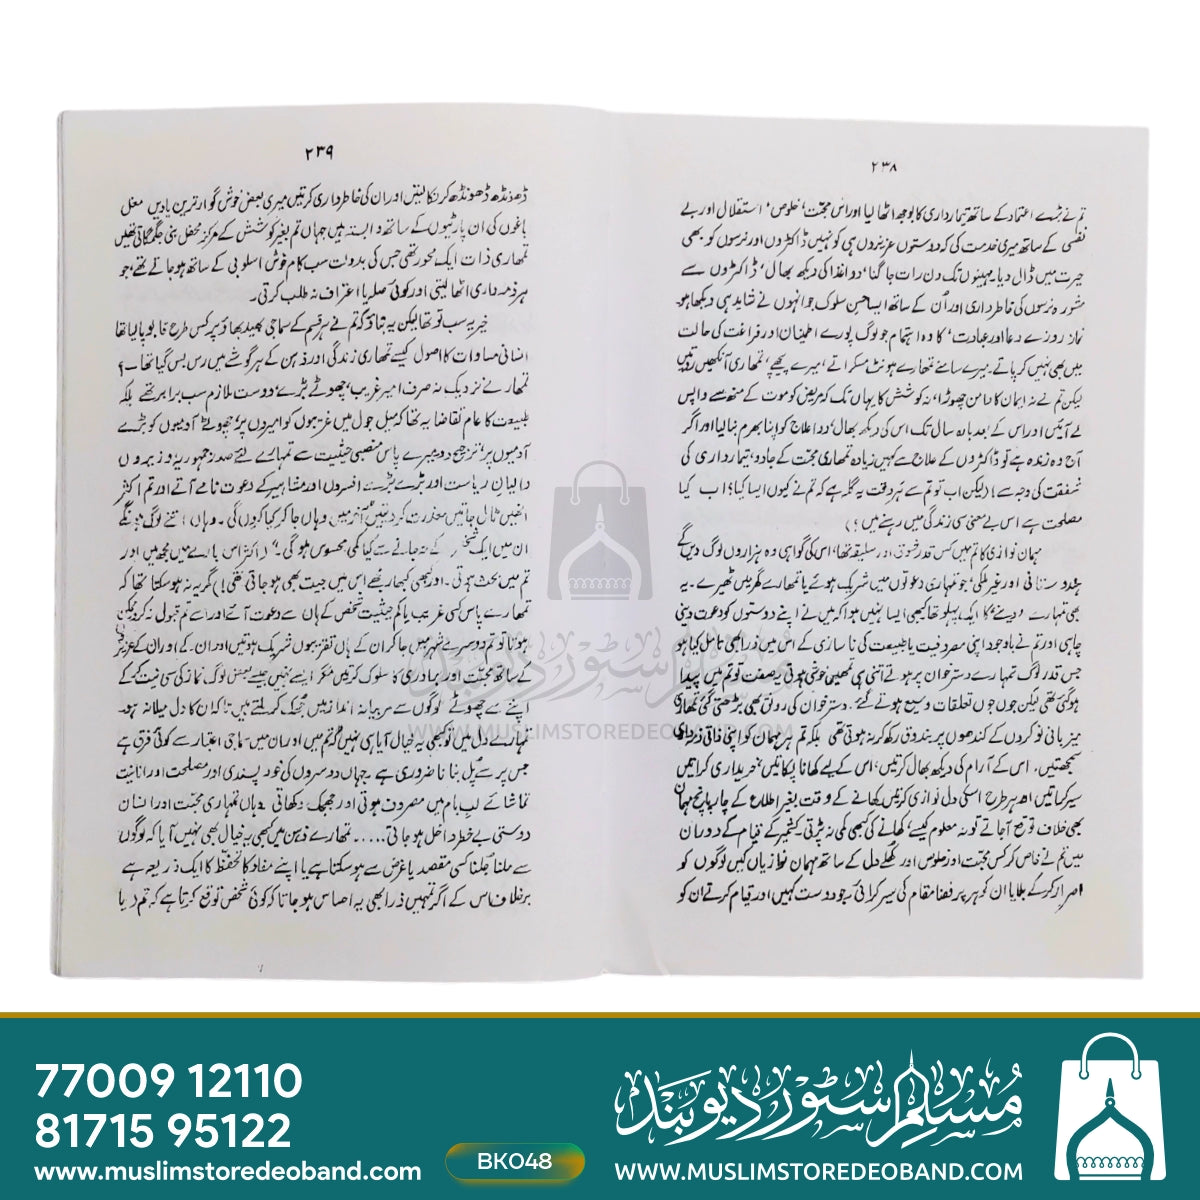 ۲۳۸
تم نے بڑے اعتماد کے ساتھ تیمارداری کا بوجھ اٹھا لیا اور اس محبت، خلوص، استقلال اور بے
نفسی کے ساتھ میری خدمت کی کہ دوستوں عزیزوں ہی کو نہیں ڈاکٹروں اور نرسوں کو بھی
حیرت میں ڈال دیا۔ مہینوں تک دن رات جاگنا، دوا غذا کی دیکھ بھال، ڈاکٹروں سے
مشورہ نرسوں کی خاطرداری اور اُن کے ساتھ ایسا حسن سلوک جو انہوں نے شاید ہی دیکھا ہو
نماز روزے دعا اور عبادت، کا وہ اہتمام جو لوگ پورے اطمینان اور فراغت کی حالت
میں بھی نہیں کر پاتے۔ میرے سامنے تمہارے ہونٹ مسکراتے، میرے پیچھے، تمہاری آنکھیں روتیں
لیکن تم نے نہ ایمان کا دامن چھوڑا، نہ کوشش کا یہاں تک کہ مریض کو موت کے منھ سے واپس
لے آئیں اور اس کے بعد بارہ سال تک اس کی دیکھ بھال، دوا علاج کو اپنا بھرم بنا لیا اور اگر
آج وہ زندہ ہے تو ڈاکٹروں کے علاج سے کہیں زیادہ تمھاری محبت کے جادو، تیمارداری کی
شفقت کی وجہ سے (لیکن اب تو تم سے ہر وقت یہ گلہ ہے کہ تم نے کیوں ایسا کیا؟ اب کیا
مصلحت ہے اس بے معنی سی زندگی میں رہنے میں؟)
مہمان نوازی کا تم میں کس قدر شوق اور سلیقہ تھا، اس کی گواہی وہ ہزاروں لوگ دیں گے
ہندوستانی اور غیر ملکی، جو تمہاری دعوتوں میں شریک ہوئے یا تمہارے گھر میں ٹھیرے۔ یہ
بھی تمہارے دینے کا ایک پہلو تھا کبھی ایسا نہیں ہوا کہ میں نے اپنے دوستوں کو دعوت دینی
چاہی اور تم نے باوجود اپنی مصروفیت یا طبیعت کی ناسازی کے اس میں ذرا بھی تامل کیا ہو
جس قدر لوگ تمہارے دسترخوان پر ہوتے اتنی ہی تمھیں خوشی ہوتی یہ صفت تو تم میں پیدا
ہو گئی تھی لیکن جوں جوں تعلقات وسیع ہوتے گئے۔ دسترخوان کی رونق بھی بڑھتی گئی تمھاری
میزبانی نوکروں کے کندھوں پر بندوق رکھ کر نہ ہوتی تھی بلکہ تم ہر مہمان کو اپنی ذاتی ذمہ داری
سمجھتیں۔ اس کے آرام کی دیکھ بھال کرتیں، اس کے لیے کھانا پکاتیں، خریداری کراتیں
سیر کراتیں اور ہر طرح اسکی دل نوازی کرتیں، کھانے کے وقت بغیر اطلاع کے چار پانچ مہمان
بھی خلاف توقع آ جاتے تو نہ معلوم کیسے، کھانے کی کبھی کمی نہ پڑتی کشمیر کے قیام کے دوران
میں تم نے خاص کر کس محبت اور خلوص اور کھلے دل کے ساتھ مہمان نوازیاں کیں لوگوں کو
اصرار کر کے بلایا ان کو ہر پر فضا مقام کی سیر کرائی جو دوست کہیں اور قیام کرتے ان کو
۲۳۹
ڈھونڈھ ڈھونڈھ کر نکالتیں اور ان کی خاطرداری کرتیں میری بعض خوش گوار ترین یادیں مغل
باغوں کی ان پارٹیوں کے ساتھ وابستہ ہیں جہاں تم بغیر کوشش کے مرکز محفل بنی جگمگاتی تھیں
تمھاری ذات ایک محور تھی جس کی بدولت سب کام خوش اسلوبی کے ساتھ ہو جاتے تھے، جو
ہر ذمہ داری اٹھا لیتی اور کوئی صلہ یا اعتراف نہ طلب کرتی۔
خیر یہ سب تو تھا لیکن یہ بتاؤ کہ تم نے ہر قسم کے سماجی بھید بھاؤ پر کس طرح قابو پا لیا تھا
انسانی مساوات کا اصول کیسے تمھاری زندگی اور ذہن کے ہر گوشے میں رس بس گیا تھا۔؟
تمھارے نزدیک نہ صرف امیر غریب، چھوٹے بڑے، دوست ملازم سب برابر تھے بلکہ
طبیعت کا عام تقاضا یہ تھا کہ میل جول میں غریبوں کو امیروں پر، چھوٹے آدمیوں کو بڑے
آدمیوں پر، ترجیح دو میرے پاس منصبی حیثیت سے تمھارے لئے صدر جمہوریہ وزیروں
والیانِ ریاست اور بڑے بڑے افسروں اور مشاہیر کے دعوت نامے آتے اور تم اکثر
انھیں ٹال جاتیں معذرت کر دیتیں، آخر میں وہاں جا کر کیا کروں گی۔ وہاں اتنے لوگ ہونگے
ان میں ایک کے نہ جانے سے کیا کمی محسوس ہو گی۔" (اکثر اس بارے میں مجھ میں اور
تم میں بحث ہوتی۔ اور کبھی کبھار مجھے اس میں جیت بھی ہو جاتی تھی) مگر یہ نہ ہو سکتا تھا کہ
تمھارے پاس کسی غریب یا کم حیثیت شخص کے ہاں سے دعوت آئے اور اسے تم قبول نہ کرو ممکن
ہوتا تو تم دوسرے شہر میں جا کر ان کے ہاں تقریبوں شریک ہوتیں اور ان کے اور ان کے عزیزوں
کے ساتھ محبت اور برادری کا سلوک کرتیں مگر ایسے نہیں جیسے بعض لوگ نماز کی سی نیت کر کے
اپنے سے چھوٹے لوگوں سے مربیانہ انداز میں جھک کر ملتے ہیں تاکہ ان کا دل میلا نہ ہو۔
تمہارے دل میں تو کبھی یہ خیال آیا ہی نہیں کہ تم میں اور ان میں سماجی اعتبار سے کوئی فرق ہے
جس پر سے پل بنانا ضروری ہے جہاں دوسروں کی خود پسندی اور مصلحت اور انانیت
تماشائے لبِ بام میں مصروف ہوتی اور جھجک دکھاتی وہاں تمہاری محبت اور انسان
دوستی بے خطر داخل ہو جاتی..... تمھارے ذہن میں کبھی یہ خیال بھی نہیں آیا کہ لوگوں
سے ملنا جلنا کسی مقصد یا غرض سے ہو سکتا ہے یا اپنے مفاد کا تحفظ کا ایک ذریعہ ہے
برخلاف اس کے اگر تمہیں ذرا بھی یہ احساس ہو جاتا کہ کوئی شخص توقع کرتا ہے کہ تم دریا
مسلم سٹور دیوبند
WWW.MUSLIMSTOREDEOBAND.COM
77009 12110
81715 95122
www.muslimstoredeoband.com
BK048
مسلم سٹور دیوبند
WWW.MUSLIMSTOREDEOBAND.COM